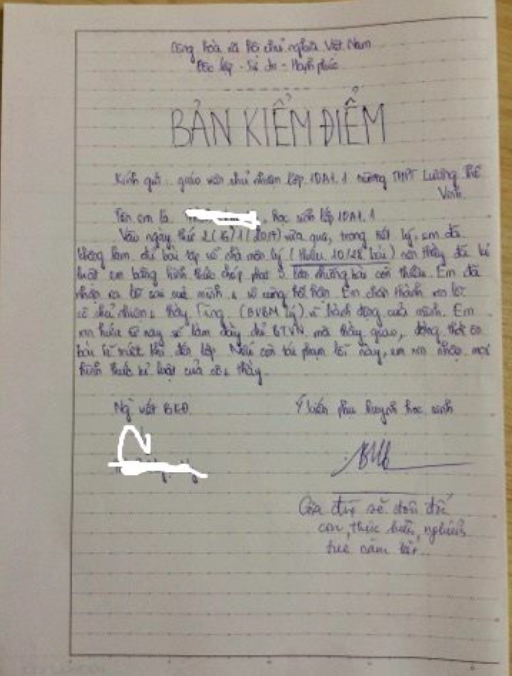 Cộng hòa xã hội chủ nghĩa Việt Nam
Độc lập - Tự do - Hạnh phúc
BẢN KIỂM ĐIỂM
Kính gửi: giáo viên chủ nhiệm lớp 10A1.1 trường THPT Lương Thế
Vinh.
Tên em là , học sinh lớp 10A1.1
Vào ngày thứ 2 (16/1/2017) vừa qua, trong tiết lý, em đã
không làm đủ bài tập về nhà môn lý (thiếu 10/28 bài) nên thầy đã kỉ
luật em bằng hình thức chép phạt 5 lần những bài còn thiếu. Em đã
nhận ra lỗi sai của mình và vô cùng hối hận. Em chân thành xin lỗi
cô chủ nhiệm, thầy Tùng (GVBM Lý) vì hành động của mình. Em
xin hứa từ nay sẽ làm đầy đủ BTVN mà thầy giao, đồng thời
bài kĩ trước khi đến lớp. Nếu còn tái phạm lỗi này, em xin nhận mọi
hình thức kỉ luật của cô, thầy.
Ng viết BKĐ
Ý kiến phụ huynh học sinh
Gia đình sẽ đôn đốc
con, thực hiện, nghiêm